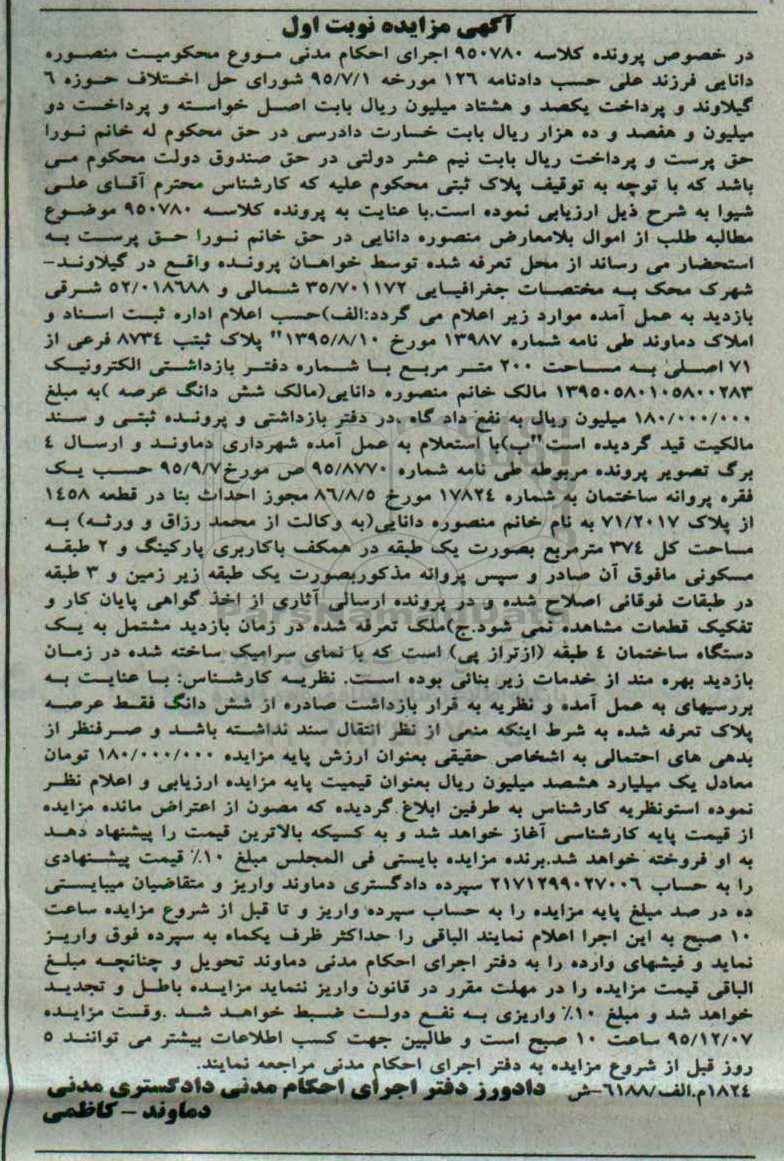 آگهی مزایده نوبت اول
در خصوص پرونده کلاسه ۹۵۰۷۸۰ اجرای احکام مدنی مووع محکومیت منصوره
دانایی فرزند علی حسب دادنامه ۱۲۶ مورخه ۹۵/۷/۱ شورای حل اختلاف حوزه ۶
گیلاوند و پرداخت یکصد و هشتاد میلیون ریال بابت اصل خواسته و پرداخت دو
میلیون و هفصد و ده هزار ریال بابت خسارت دادرسی در حق محکوم له خانم نورا
حق پرست و پرداخت ریال بابت نیم عشر دولتی در حق صندوق دولت محکوم می
باشد که با توجه به توقیف پلاک ثبتی محکوم علیه که کارشناس محترم آقای علی
شیوا به شرح ذیل ارزیابی نموده است.با عنایت به پرونده کلاسه ۹۵۰۷۸۰ موضوع
مطالبه طلب از اموال بلامعارض منصوره دانایی در حق خانم نورا حق پرست به
استحضار می رساند از محل تعرفه شده توسط خواهان پرونده واقع در گیلاوند-
شهرک محک به مختصات جغرافیایی ۳۵/۷۰۱۱۷۲ شمالی و ۵۲/۰۱۸۶۸۸ شرقی
بازدید به عمل آمده موارد زیر اعلام می گردد:الف)حسب اعلام اداره ثبت اسناد و
املاک دماوند طی نامه شماره ۱۳۹۸۷ مورخ ۱۳۹۵/۸/۱۰" پلاک ثبتب ۸۷۳۴ فرعی از
۷۱ اصلی به مساحت ۲۰۰ متر مربع با شماره دفتر بازداشتی الکترونیک
۱۳۹۵۰۵۸۰۱۰۵۸۰۰۲۸۳ مالک خانم منصوره دانایی(مالک شش دانگ عرصه )به مبلغ
۱۸۰/۰۰۰/۰۰۰ میلیون ریال به نفع داد گاه .در دفتر بازداشتی و پرونده ثبتی و سند
مالکیت قید گردیده است"ب)با استعلام به عمل آمده شهرداری دماوند و ارسال ۴
برگ تصویر پرونده مربوطه طی نامه شماره ۹۵/۸۷۷۰ ص مورخ۹۵/۹/۷ حسب یک
فقره پروانه ساختمان به شماره ۱۷۸۲۴ مورخ ۸۶/۸/۵ مجوز احداث بنا در قطعه ۱۴۵۸
از پلاک ۷۱/۲۰۱۷ به نام خانم منصوره دانایی(به وکالت از محمد رزاق و ورثه) به
مساحت کل ۳۷۴ مترمربع بصورت یک طبقه در همکف باکاربری پارکینگ و ۲ طبقه
مسکونی مافوق آن صادر و سپس پروانه مذکوربصورت یک طبقه زیر زمین و ۳ طبقه
در طبقات فوقانی اصلاح شده و در پرونده ارسالی آثاری از اخذ گواهی پایان کار و
تفکیک قطعات مشاهده نمی شود.ج)ملک تعرفه شده در زمان بازدید مشتمل به یک
دستگاه ساختمان ۴ طبقه (ازتراز پی) است که با نمای سرامیک ساخته شده در زمان
بازدید بهره مند از خدمات زیر بنائی بوده است. نظریه کارشناس: با عنایت به
بررسیهای به عمل آمده و نظریه به قرار بازداشت صادره از شش دانگ فقط عرصه
پلاک تعرفه شده به شرط اینکه منعی از نظر انتقال سند نداشته باشد و صرفنظر از
بدهی های احتمالی به اشخاص حقیقی بعنوان ارزش پایه مزایده ۱۸۰/۰۰۰/۰۰۰ تومان
معادل یک میلیارد هشصد میلیون ریال بعنوان قیمیت پایه مزایده ارزیابی و اعلام نظر
نموده استونظریه کارشناس به طرفین ابلاغ گردیده که مصون از اعتراض مانده مزایده
از قیمت پایه کارشناسی آغاز خواهد شد و به کسیکه بالاترین قیمت را پیشنهاد دهد
به او فروخته خواهد شد.برنده مزایده بایستی فی المجلس مبلغ ۱۰٪ قیمت پیشنهادی
را به حساب ۲۱۷۱۲۹۹۰۲۷۰۰۶ سپرده دادگستری دماوند واریز و متقاضیان میبایستی
ده در صد مبلغ پایه مزایده را به حساب سپرده واریز و تا قبل از شروع مزایده ساعت
۱۰ صبح به این اجرا اعلام نمایند الباقی را حداکثر ظرف یکماه به سپرده فوق واریز
نماید و فیشهای وارده را به دفتر اجرای احکام مدنی دماوند تحویل و چنانچه مبلغ
الباقی قیمت مزایده را در مهلت مقرر در قانون واریز ننماید مزایده باطل و تجدید
خواهد شد و مبلغ ۱۰٪ واریزی به نفع دولت ضبط خواهد شد .وقت مزایده
۹۵/۱۲/۰۷ ساعت ۱۰ صبح است و طالبین جهت کسب اطلاعات بیشتر می توانند ۵
روز قبل از شروع مزایده به دفتر اجرای احکام مدنی مراجعه نمایند.
۱۸۲۴م.الف/۶۱۸۸-ش دادورز دفتر اجرای احکام مدنی دادگستری مدنی
دماوند - کاظمی